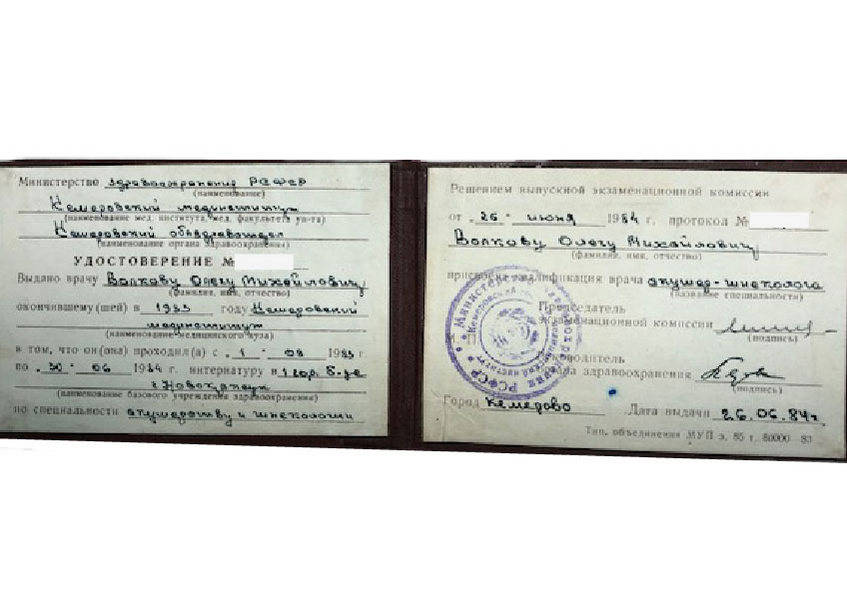 Министерство здравоохранения РСФСР
(наименование)
Кемеровский мединститут
(наименование мед. института, мед. факультета ун-та)
Кемеровский облздравотдел
(наименование органа здравоохранения)
УДОСТОВЕРЕНИЕ №
Выдано врачу Волкову Олегу Михайловичу
(фамилия, имя, отчество)
окончившему(шей) в 1983 году Кемеровский
мединститут
(наименование медицинского вуза)
в том, что он(она) проходил(а) с 1 08 1983 г
по 30 06 1984 г. интернатуру в 1 гор. б-це
г. Новокузнецк
(наименование базового учреждения здравоохранения)
по специальности акушерству и гинекологии
Решением выпускной экзаменационной комиссии
от 26 июня 1984 г. протокол №
Волкову Олегу Михайловичу
(фамилия, имя, отчество)
присвоена квалификация врача акушер-гинеколога
(название специальности)
Председатель
экзаменационной комиссии
М. П.
(подпись)
здравоохранения
(подпись)
Город Кемерово Дата выдачи 26.06.84г.
Тип. объединения МУП з. 85 г. 80000 83
Министерство здравоохранения РСФСР